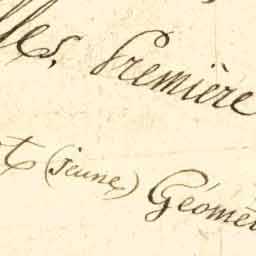 lles, Première
t (jeune) Géomèt